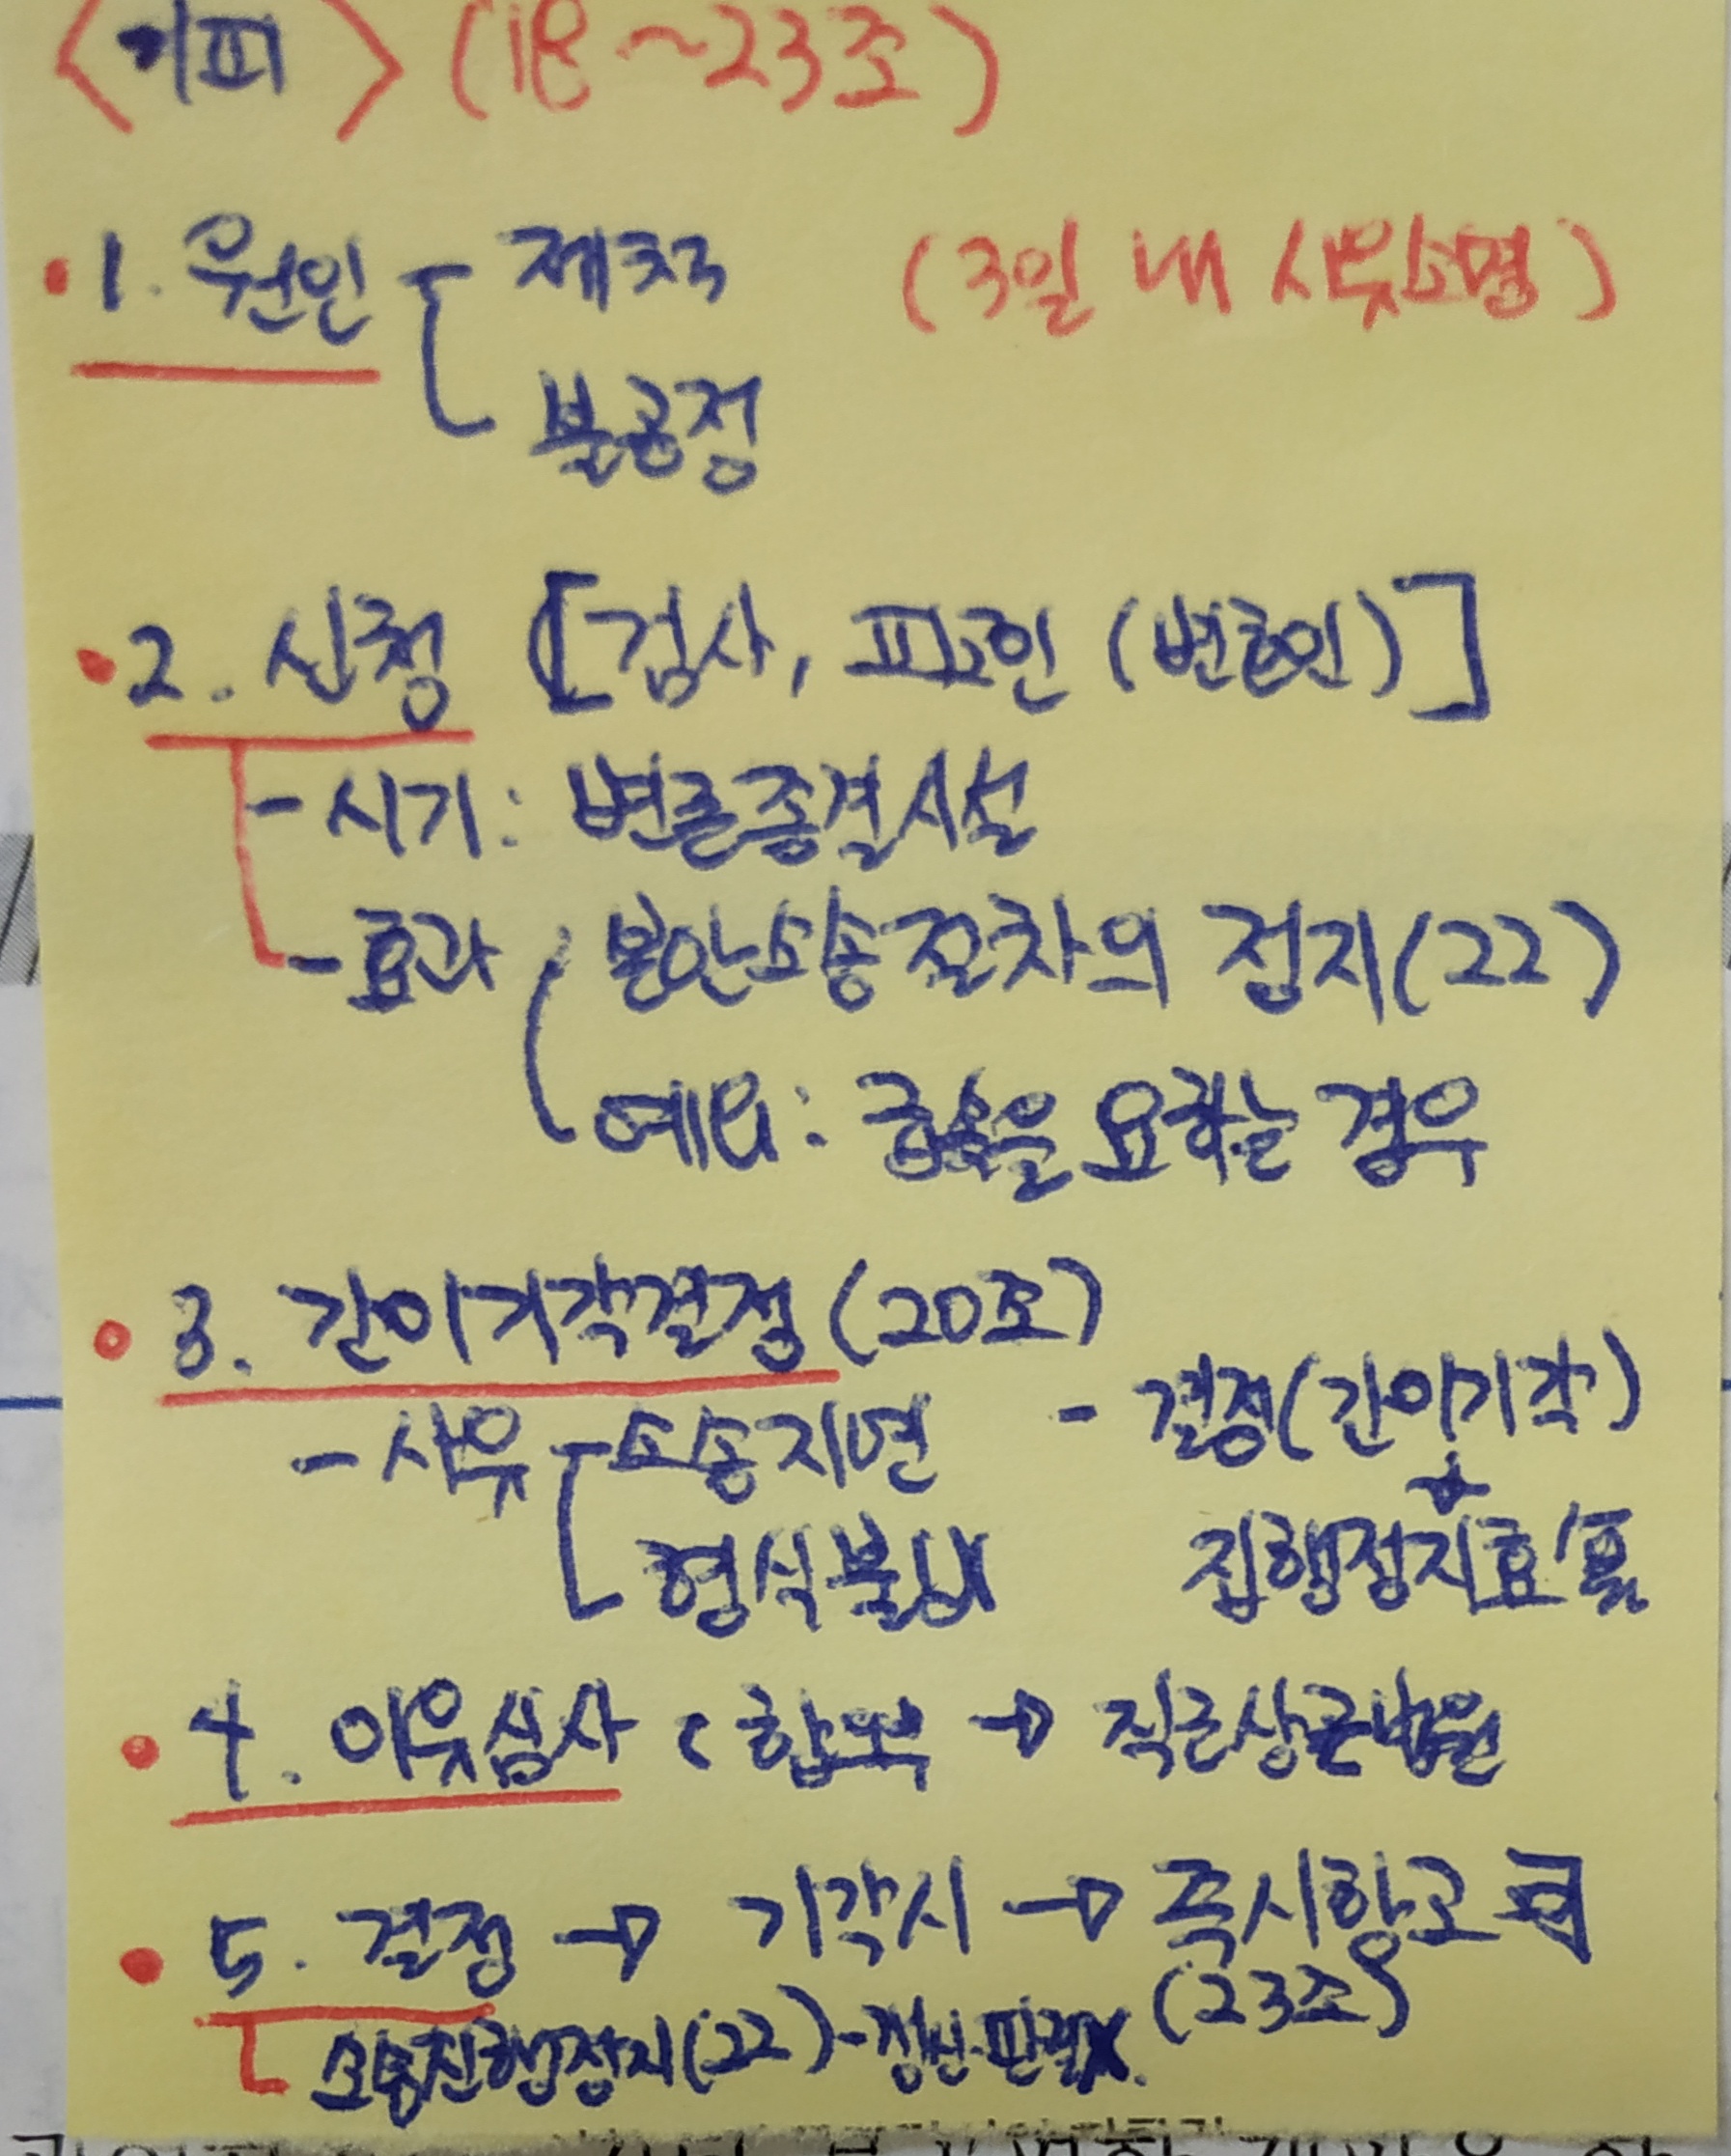 <기피> (18~23조)
· 1. 원인 제척 (3일 내 사유소명)
불공정
· 2. 신청 [검사, 피고인 (변호인)]
- 시기: 변론종결시설
- 효과 본안소송절차의 정지(22)
예외: 급속을 요하는 경우
· 3. 간이기각결정 (20조)
- 사유 소송지연 - 결정(간이기각)
형식불비 +
집행정지효
· 4. 이유심사 합의부 → 직근상급법원
· 5. 결정 → 기각시 → 즉시항고
(23조)
소송진행정지(22) -